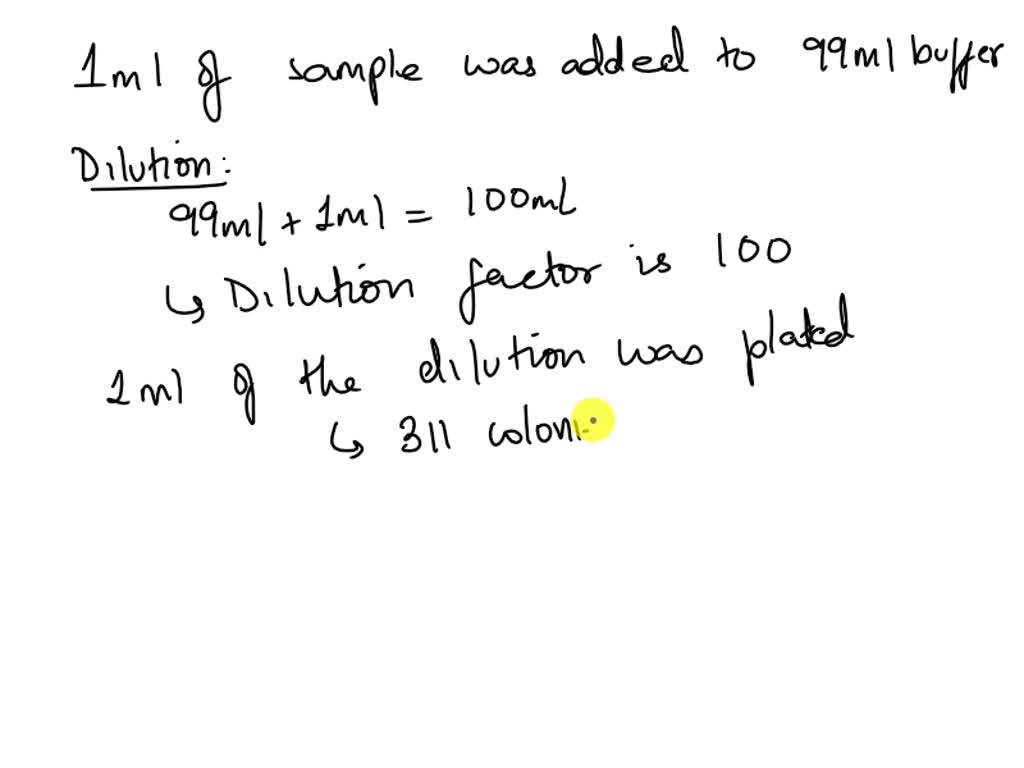 1ml of sample was added to 99ml buffer
Dilution:
99ml + 1ml = 100mL
↳ Dilution factor is 100
1ml of the dilution was plated
↳ 311 coloni